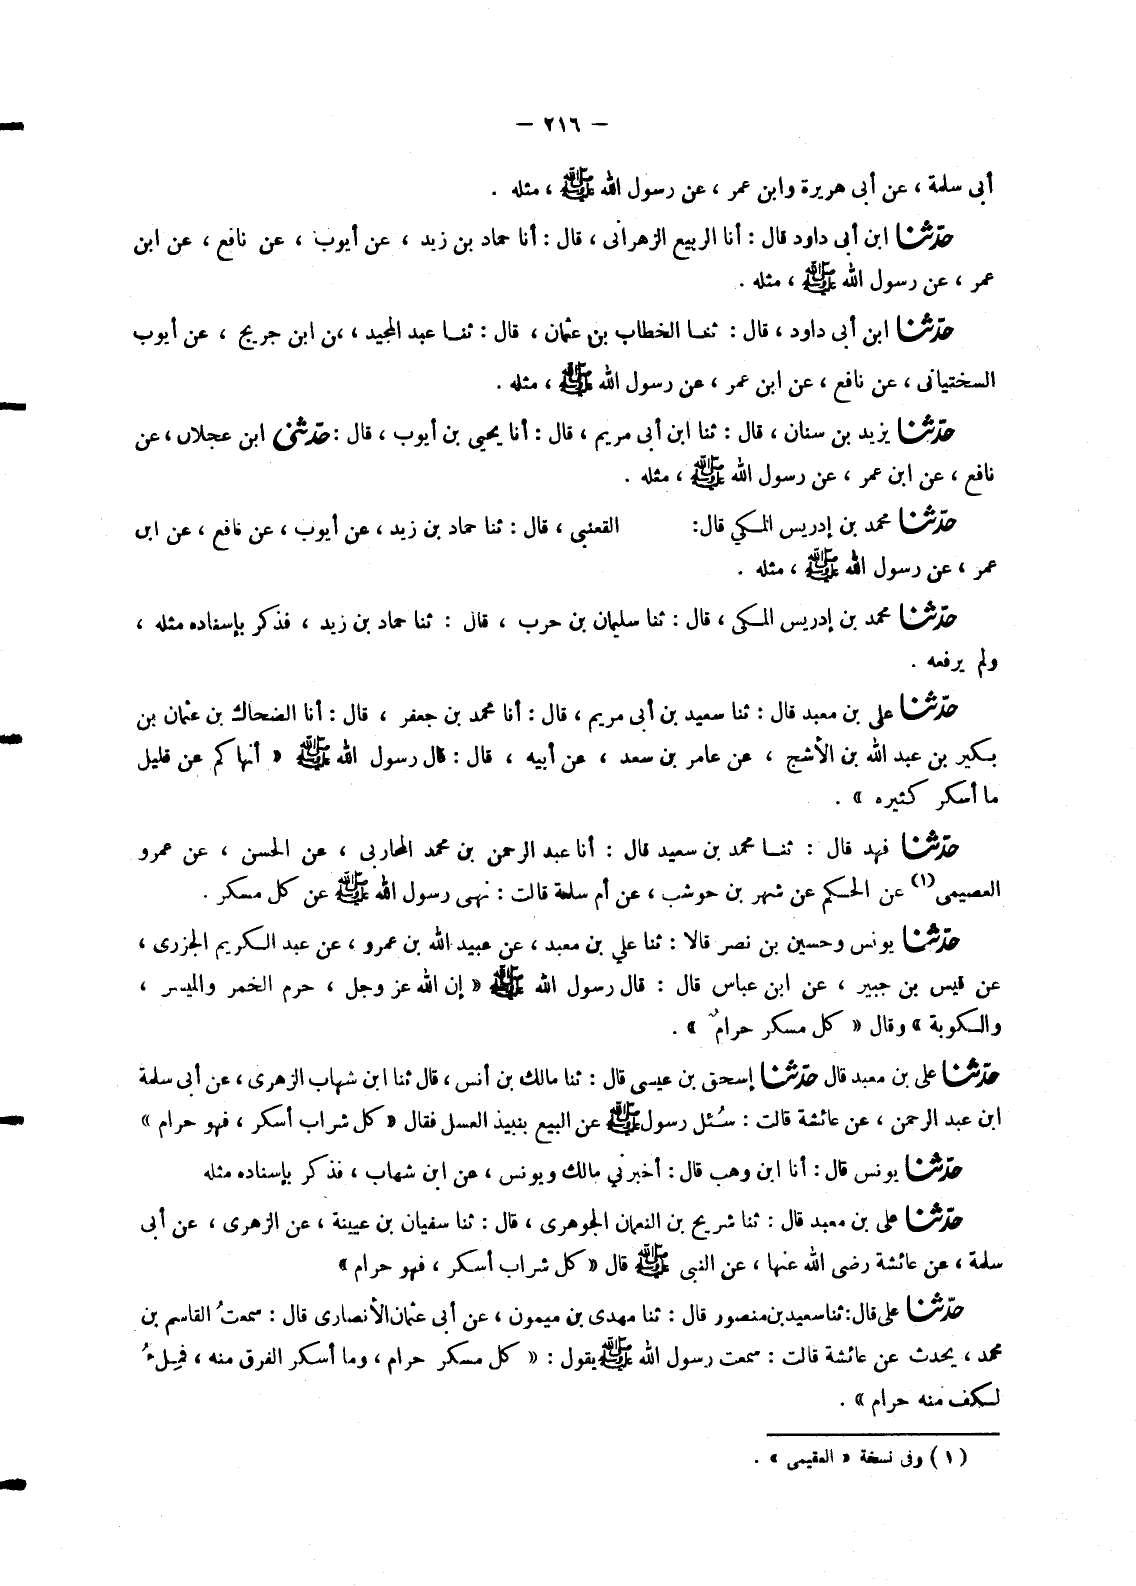 — ٢١٦ —
أبى سلمة ، عن أبى هريرة وابن عمر ، عن رسول الله ﷺ ، مثله .
حدّثنا ابن أبى داود قال : أنا الربيع الزهرانى ، قال : أنا حماد بن زيد ، عن أيوب ، عن نافع ، عن ابن
عمر ، عن رسول الله ﷺ ، مثله .
حدّثنا ابن أبى داود ، قال : ثنا الخطاب بن عثمان ، قال : ثنا عبد المجيد ، عن ابن جريج ، عن أيوب
السختيانى ، عن نافع ، عن ابن عمر ، عن رسول الله ﷺ ، مثله .
حدّثنا يزيد بن سنان ، قال : ثنا ابن أبى مريم ، قال : أنا يحيى بن أيوب ، قال : حدّثنى ابن عجلان ، عن
نافع ، عن ابن عمر ، عن رسول الله ﷺ ، مثله .
حدّثنا محمد بن إدريس المكي قال: القعنبى ، قال : ثنا حماد بن زيد ، عن أيوب ، عن نافع ، عن ابن
عمر ، عن رسول الله ﷺ ، مثله .
حدّثنا محمد بن إدريس المكى ، قال : ثنا سليمان بن حرب ، قال : ثنا حماد بن زيد ، فذكر بإسناده مثله ،
ولم يرفعه .
حدّثنا على بن معبد قال : ثنا سعيد بن أبى مريم ، قال : أنا محمد بن جعفر ، قال : أنا الضحاك بن عثمان بن
بكير بن عبد الله بن الأشج ، عن عامر بن سعد ، عن أبيه ، قال : قال رسول الله ﷺ « أنهاكم عن قليل
ما أسكر كثيره » .
حدّثنا فهد قال : ثنا محمد بن سعيد قال : أنا عبد الرحمن بن محمد المحاربى ، عن الحسن ، عن عمرو
العصيمى(١) عن الحكم عن شهر بن حوشب ، عن أم سلمة قالت : نهى رسول الله ﷺ عن كل مسكر .
حدّثنا يونس وحسين بن نصر قالا : ثنا علي بن معبد ، عن عبيد الله بن عمرو ، عن عبد الكريم الجزرى ،
عن قيس بن جبير ، عن ابن عباس قال : قال رسول الله ﷺ « إن الله عز وجل ، حرم الخمر والميسر ،
والكوبة » وقال « كل مسكر حرامٌ » .
حدّثنا على بن معبد قال حدّثنا إسحق بن عيسى قال : ثنا مالك بن أنس ، قال ثنا ابن شهاب الزهرى ، عن أبى سلمة
ابن عبد الرحمن ، عن عائشة قالت : سُئل رسول ﷺ عن البيع بنبيذ العسل فقال « كل شراب أسكر ، فهو حرام »
حدّثنا يونس قال : أنا ابن وهب قال : أخبرني مالك ويونس ، عن ابن شهاب ، فذكر بإسناده مثله
حدّثنا على بن معبد قال : ثنا شريح بن النعمان الجوهرى ، قال : ثنا سفيان بن عيينة ، عن الزهرى ، عن أبى
سلمة ، عن عائشة رضى الله عنها ، عن النبى ﷺ قال « كل شراب أسكر ، فهو حرام »
حدّثنا على قال : ثنا سعيد بن منصور قال : ثنا مهدى بن ميمون ، عن أبى عثمان الأنصارى قال : سمعتُ القاسم بن
محمد ، يحدث عن عائشة قالت : سمعت رسول الله ﷺ يقول : « كل مسكر حرام ، وما أسكر الفرق منه ، فمِلءُ
لكف منه حرام » .
(١) وفى نسخة « العقيمى » .